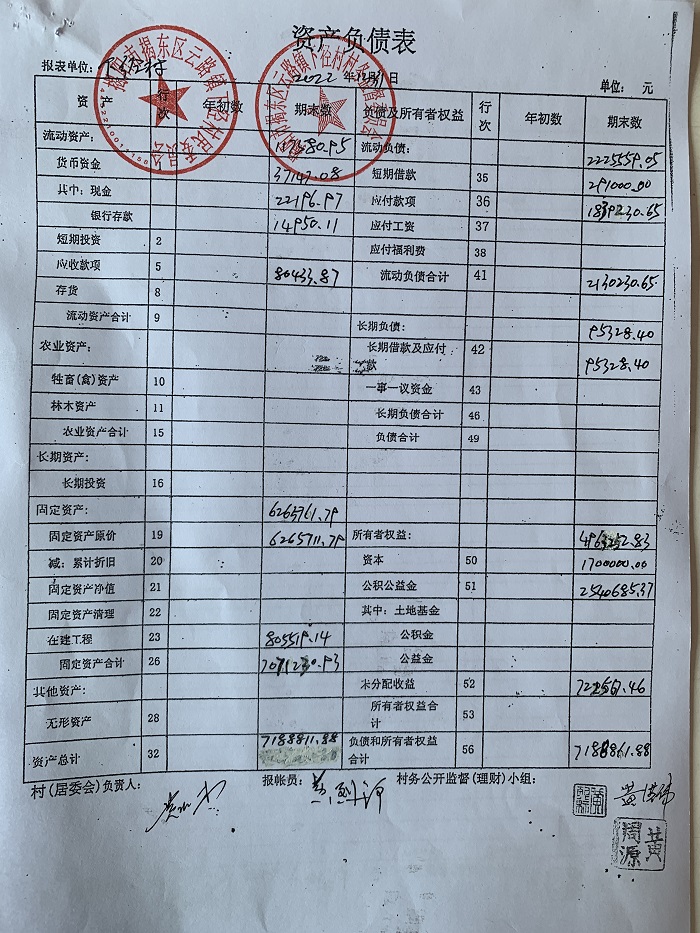 资产负债表
报表单位: 下径村 2022 年12月31日 单位: 元
资 产 行次 年初数 期末数 负债及所有者权益 行次 年初数 期末数
流动资产: 117580.95 流动负债: 2225559.05
货币资金 37147.08 短期借款 35 291000.00
其中: 现金 22196.97 应付款项 36 1839230.65
银行存款 14950.11 应付工资 37
短期投资 2 应付福利费 38
应收款项 5 80433.87 流动负债合计 41 2130230.65
存货 8
流动资产合计 9 长期负债: 95328.40
农业资产: 长期借款及应付款 42 95328.40
牲畜(禽)资产 10 一事一议资金 43
林木资产 11 长期负债合计 46
农业资产合计 15 负债合计 49
长期资产:
长期投资 16
固定资产: 6265711.79
固定资产原价 19 6265711.79 所有者权益: 4963252.83
减: 累计折旧 20 资本 50 1700000.00
固定资产净值 21 公积公益金 51 2540685.37
固定资产清理 22 其中: 土地基金
在建工程 23 805519.14 公积金
固定资产合计 26 7071230.93 公益金
其他资产: 未分配收益 52 722567.46
无形资产 28 所有者权益合计 53
资产总计 32 7188811.88 负债和所有者权益合计 56 7188811.88
村(居委会)负责人: 报帐员: 村务公开监督(理财)小组:
黄周源